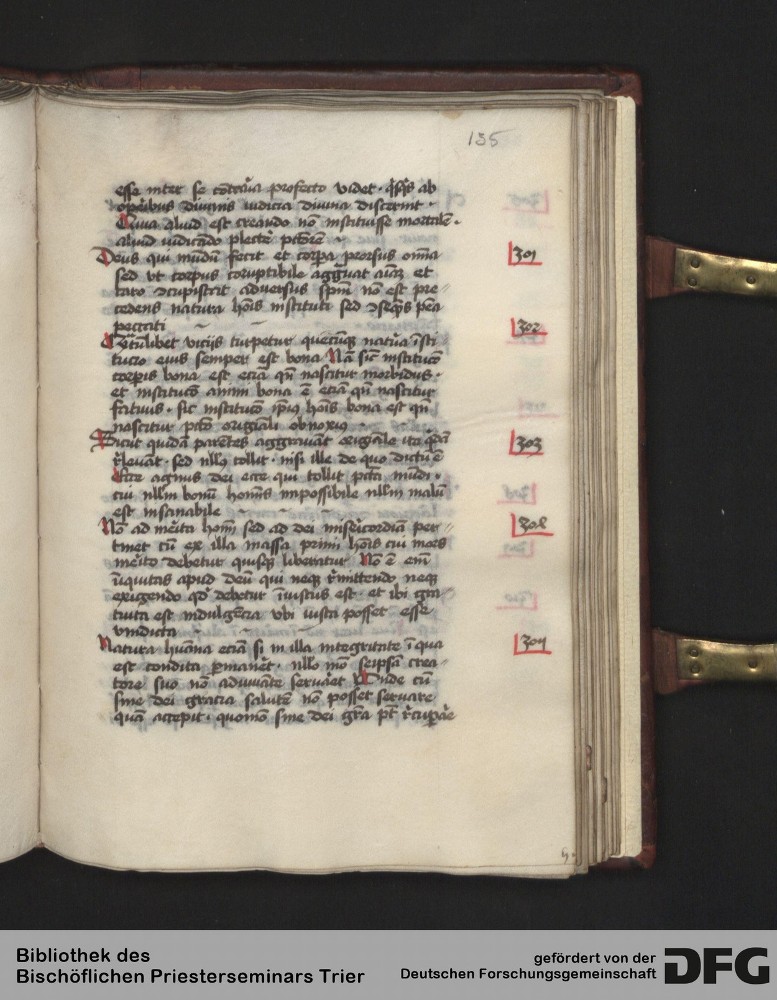 135
esse inter se co̅traria profecto videt · q̇sq̇s ab
operibus diuinis iudicia diuina discernit ·
Quia aliud est creando no̅ instituisse mortale̅ ·
aliud iudicando plecte̅ p̅c̅tore̅
Deus qui mundu̅ fecit et corpora prorsus om̅ia
301
sed vt corpus coruptibile aggrauat aīa̅ et
caro ꝯcupiscit aduersus sp̅m̅ no̅ est pre-
cedens natura ho̅is instituti sed ꝯseque̅s pena
peccati
302
vicijs turpetur quecu̅q natura i̅sti
tucio eius semper est bona Na̅ sicut institucio
corporis bona est ecia̅ qn̅ nascitur morbidus ·
et institucio animi bona e̅ ecia̅ qn̅ nascitur
fatuus · sic institucio ip̅ius ho̅is bona est qn̅
nascitur p̅c̅to originali obnoxius
303
Dicut quida̅ parentes aggrauant originale ita
releuant · sed nullus tollit · nisi ille de quo dictu̅ e̅
Ecce agnus dei ecce qui tollit p̅c̅ta mundi ·
cui nullm bonu̅ hominis impossibile nullm malu̅
est insanabile
304
No̅ ad merita hom̅ sed ad dei misericordia̅ per
tinet cu̅ ex illa massa primi ho̅is cui mors
merito debetur quisq liberatur No̅ e̅ em̅
iniquitas apud deu̅ qui neq remittendo neq
exigendo qd debetur iniustus est · et ibi gra
tuita est indulgencia vbi iusta posset esse
vindicta
305
Natura hu̅ana ecia̅ si in illa integritate i̅ qua
est condita permaneret · nullo mo̅ seipsa̅ crea
tore suo no̅ adiuuante seruaret Vnde cu̅
sine dei gracia salute̅ no̅ posset seruare
qua̅ accepit · quomo̅ sine dei gr̅a pt̅ recuperare
Bibliothek des
Bischöflichen Priesterseminars Trier
gefördert von der
Deutschen Forschungsgemeinschaft
DFG